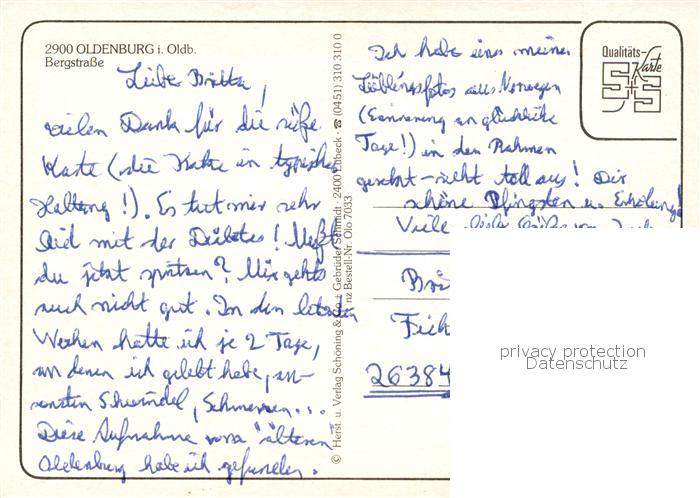 2900 OLDENBURG i. Oldb.
Bergstraße
Liebe Britta,
vielen Dank für die süße
Karte (die Katze in typischer
Haltung!). Es tut mir sehr
leid mit der Diabetes! Mußt
du jetzt spritzen? Mir gehts
auch nicht gut. In den letzten
Wochen hatte ich je 2 Tage,
an denen ich gelebt habe, an-
sonsten Schwindel, Schmerzen...
Diese Aufnahme vom "älteren"
Oldenburg habe ich gefunden.
© Herst. u. Verlag Schöning & Co + Gebrüder Schmidt · 2400 Lübeck · ☎ (0451) 310 310 0
nz Bestell-Nr. Olo 7033
Ich habe eines meiner
Lieblingsfotos aus Norwegen
(Erinnerung an glückliche
Tage!) in den Rahmen
gesetzt - sieht toll aus! Dir
schöne Pfingsten u. Erholung!
Viele liebe Grüße von
Bri
Fich
26384
Qualitäts-
Karte
S+S
privacy protection
Datenschutz